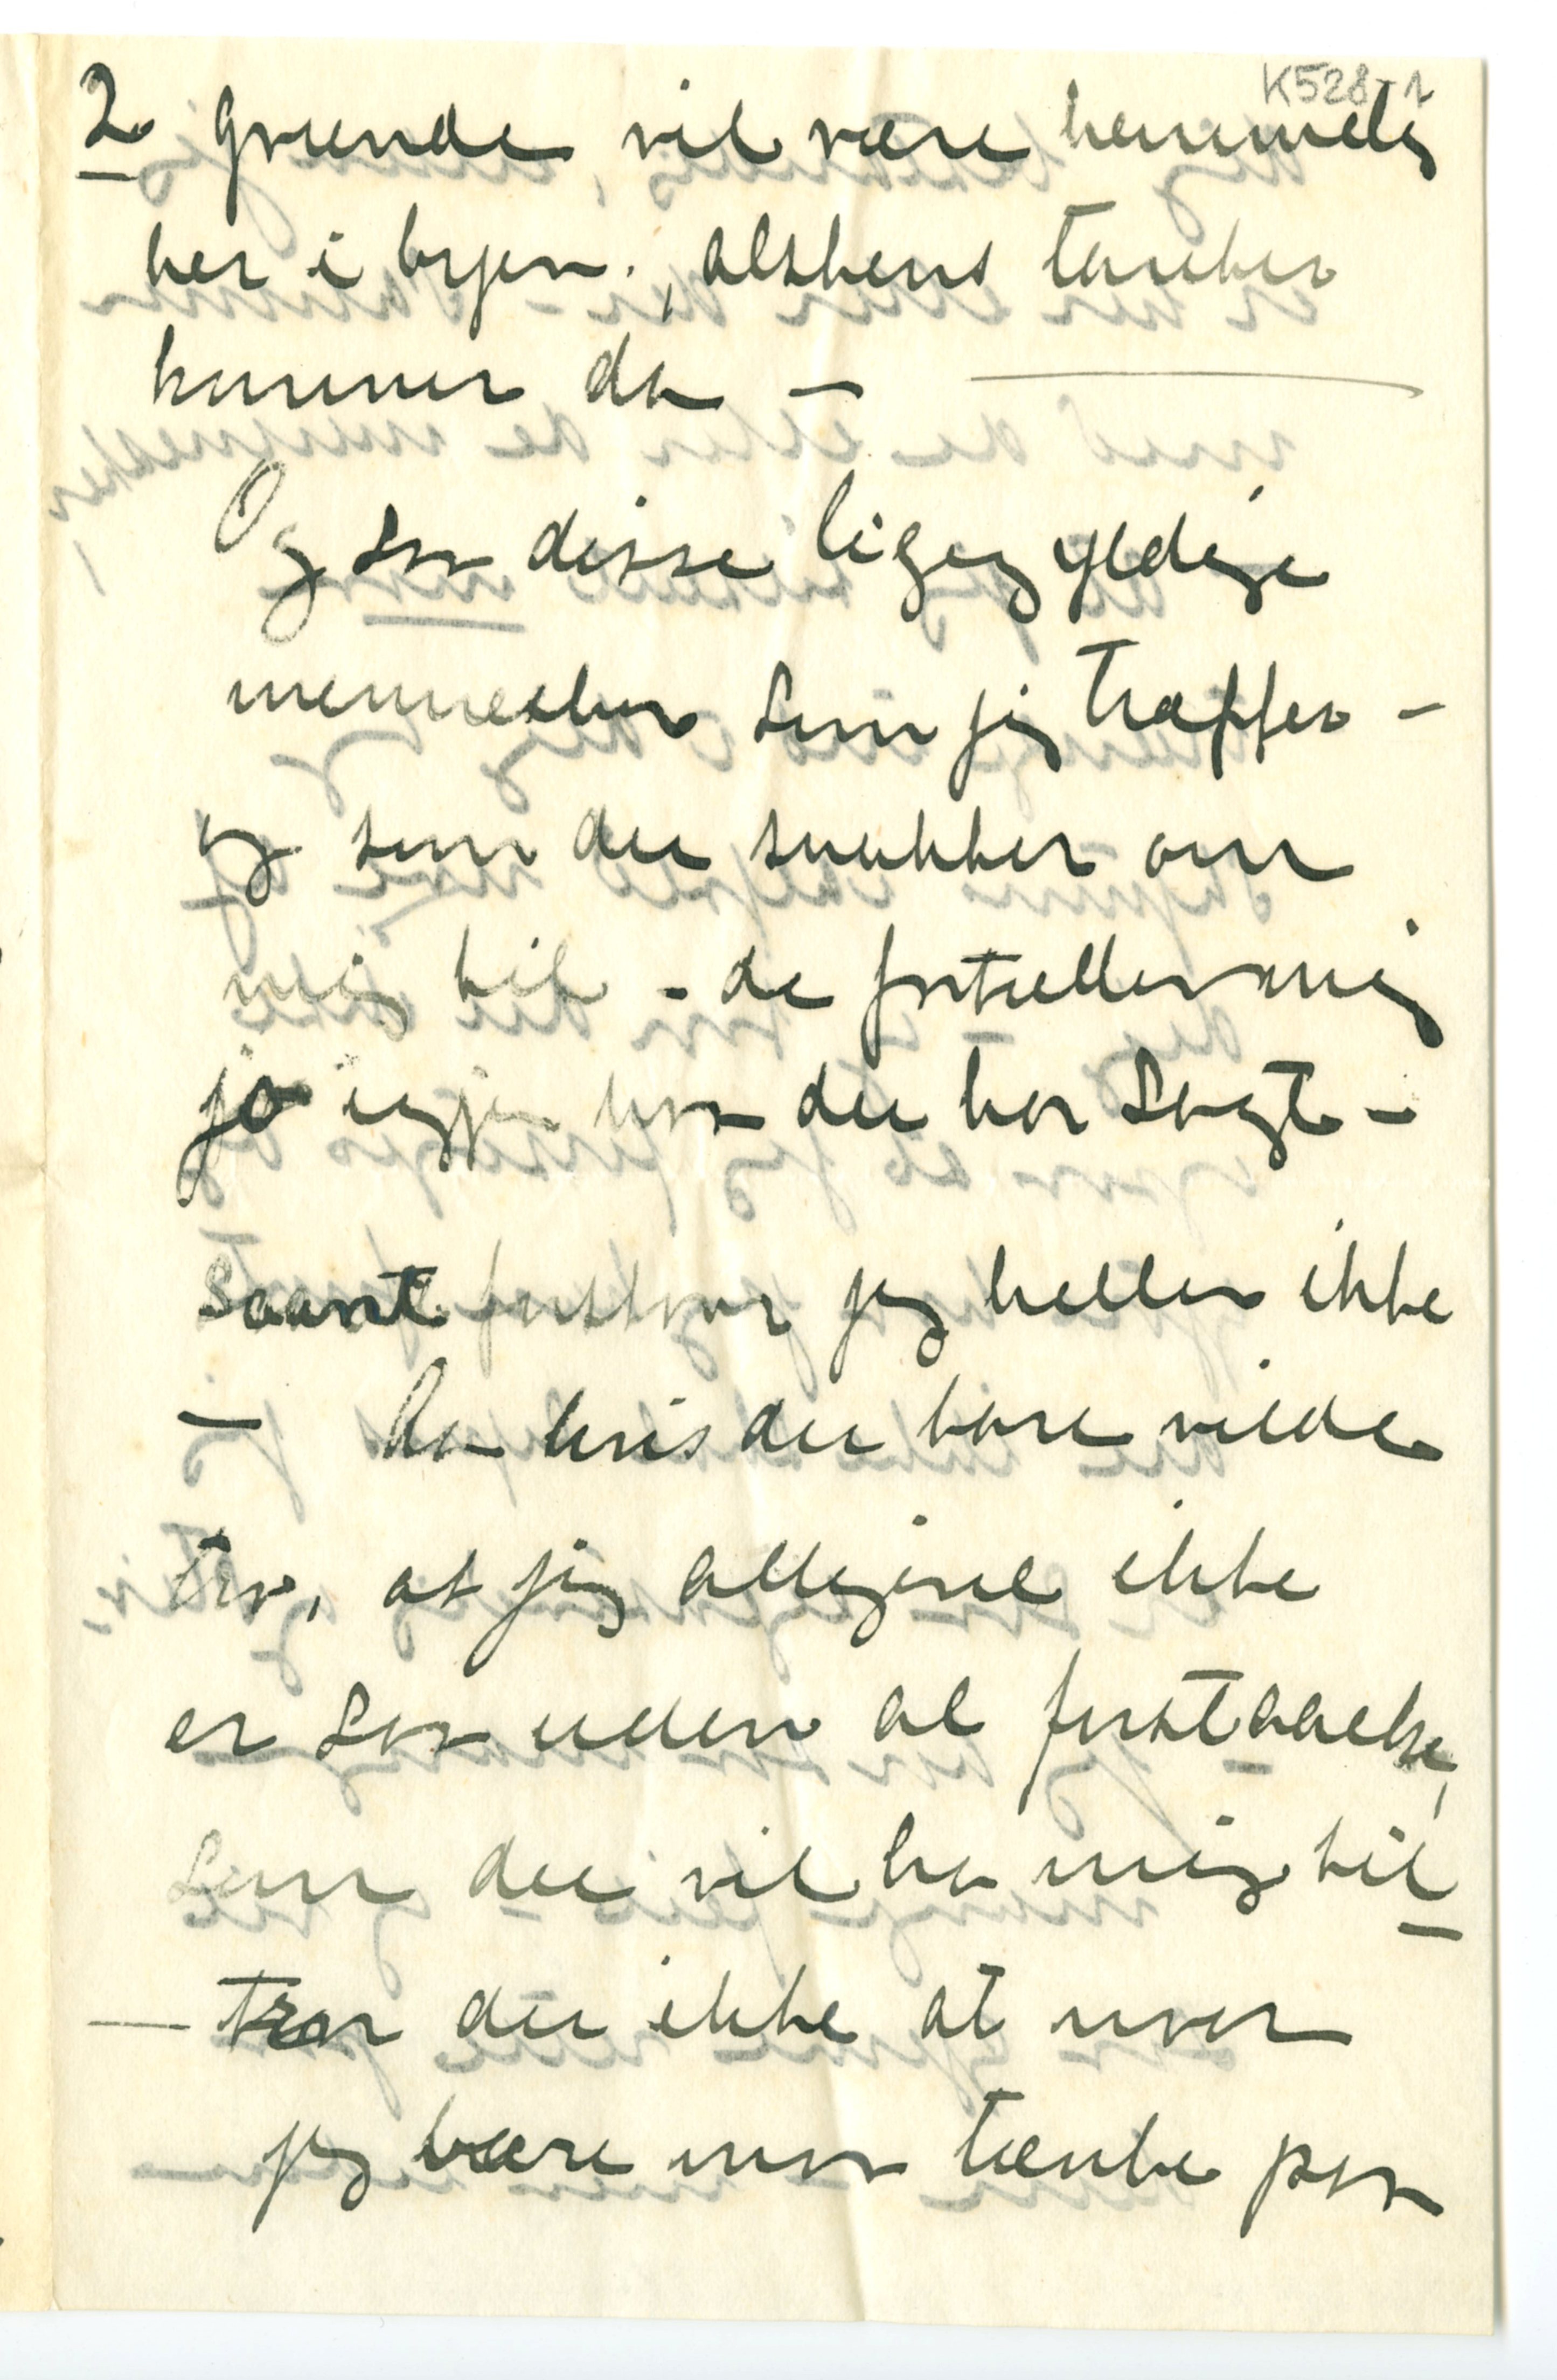 K528-1
2 grunde, vil være hemmelig
her i byen., alskens tanker
kommer da –
Og saa disse ligegyldige
mennesker som jeg træffer –
og som du snakker om
mig til – de fortæller mig
jo igjen hva du har sagt –
Saant forstaar jeg heller ikke
– Aa hvis du bare vilde
tro, at jeg alligevel ikke
er saa uden al forstaaelse,
som du vil ha mig til
– tror du ikke at naar
jeg bare maa tænke paa